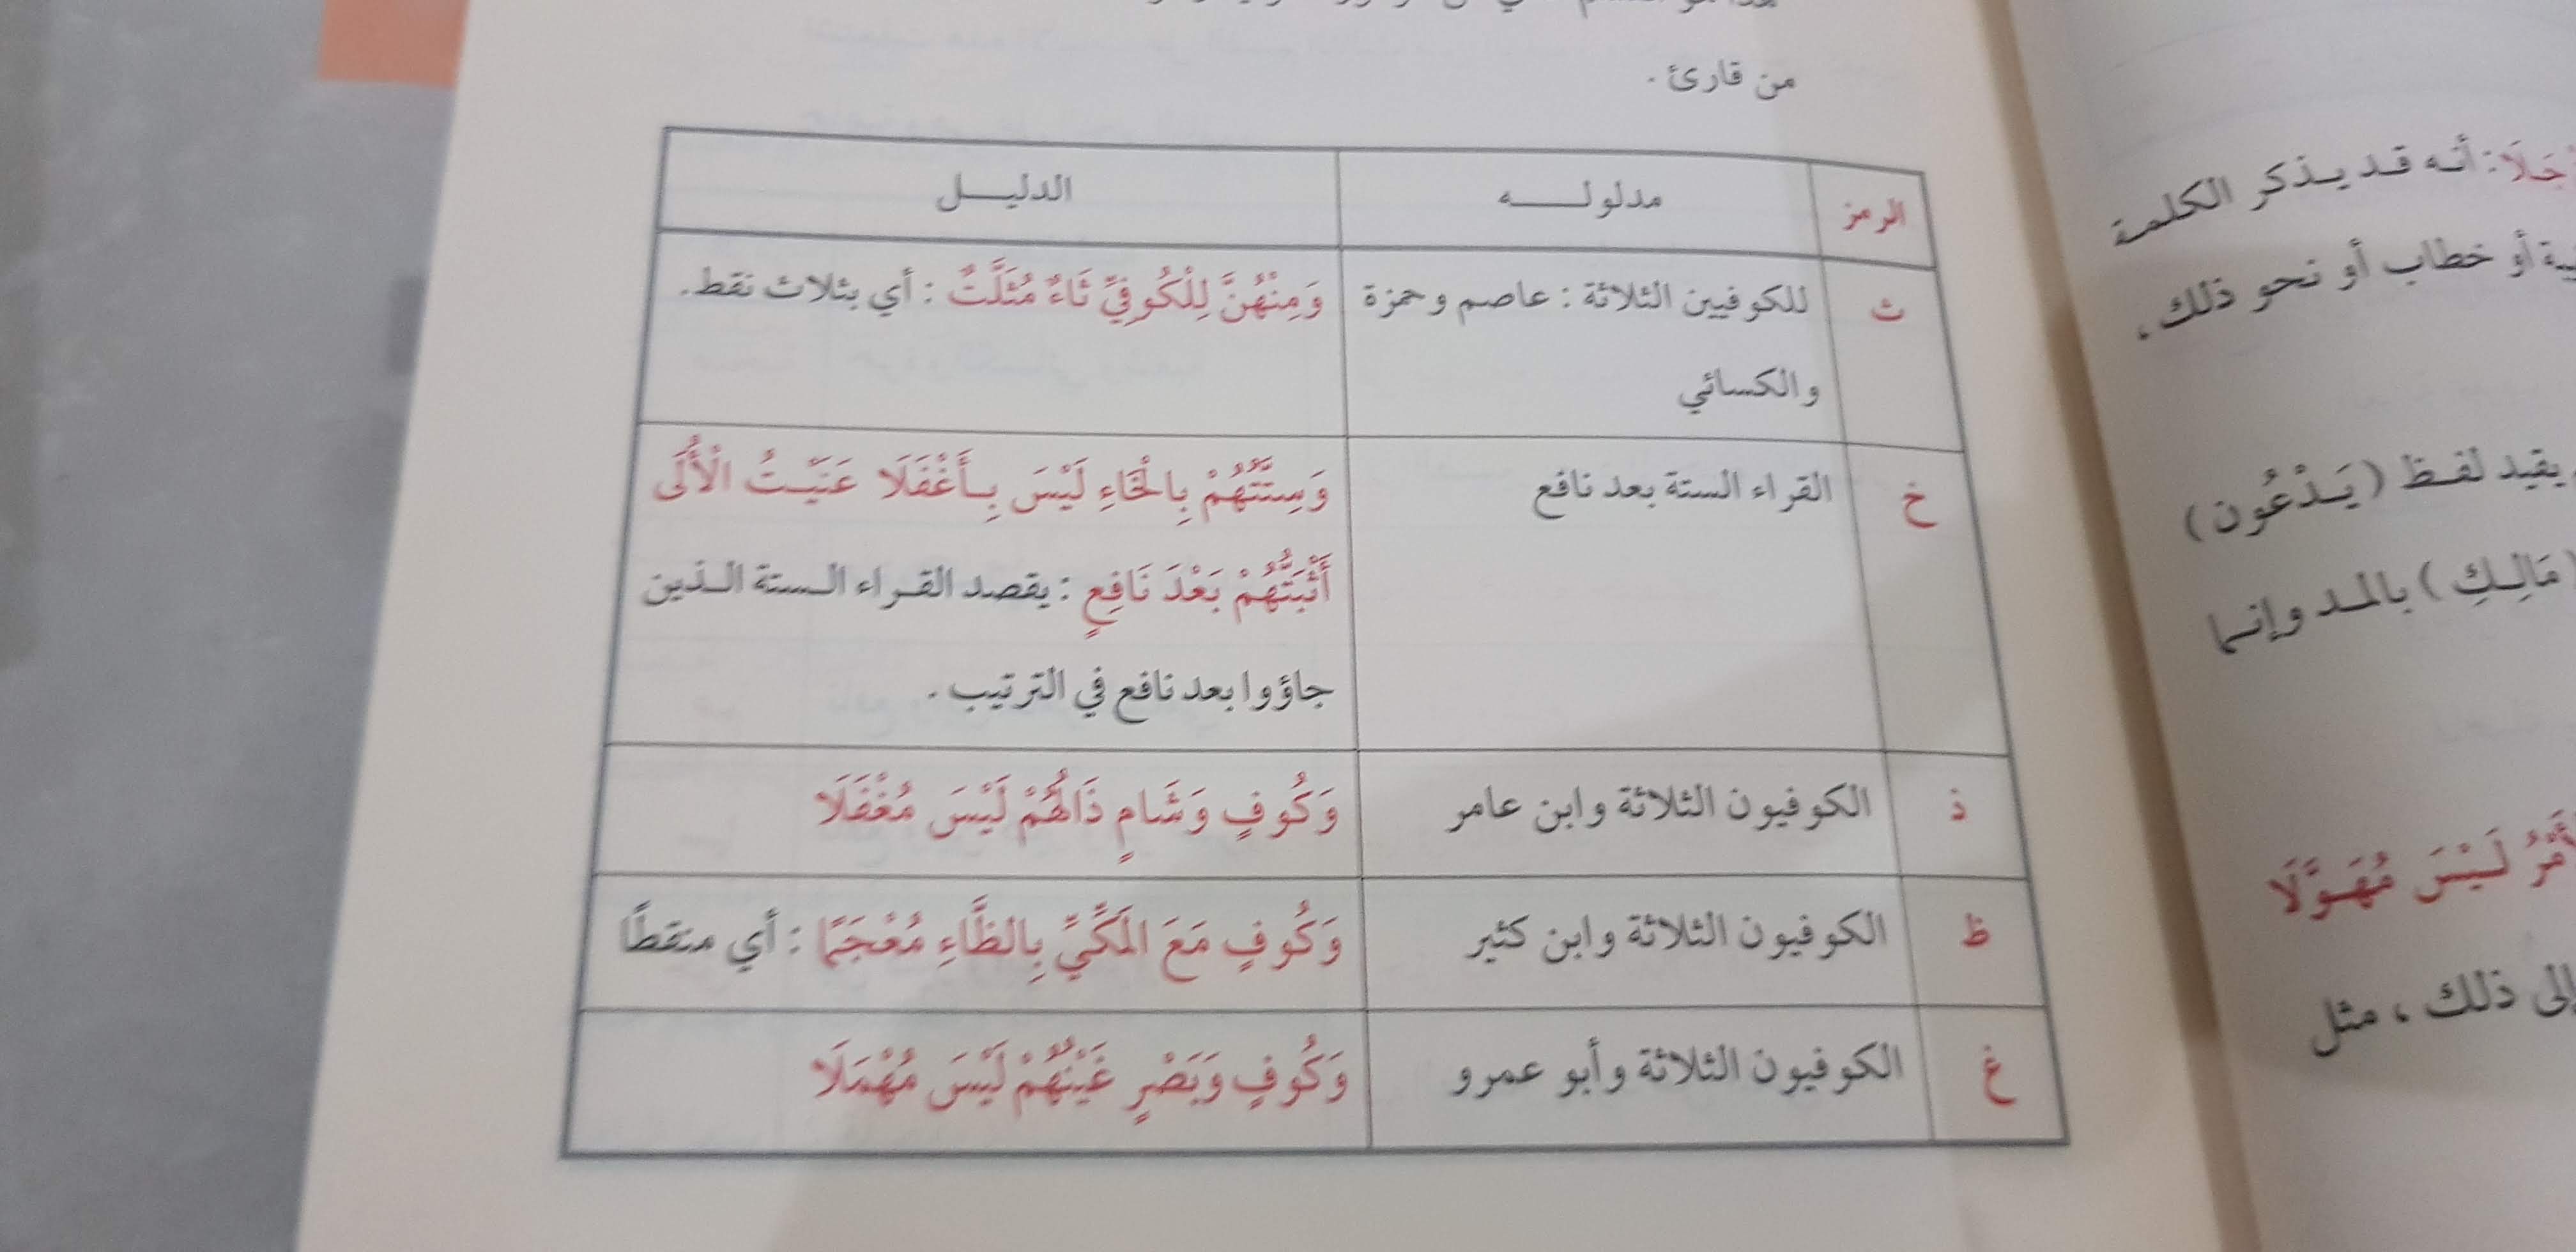 من قارئ .
الرمز مدلولـــــه الدليـــل
ث للكوفيين الثلاثة : عاصم وحمزة وَمِنْهُنَّ لِلْكُوفِيِّ ثَاءٌ مُثَلَّثٌ : أي بثلاث نقط.
والكسائي
خ القراء الستة بعد نافع وَسِتَّتُهُمْ بِالْخَاءِ لَيْسَ بِـأَغْفَلَا عَنَيْـتُ الْأُلَى
أَثْبَتُّهُمْ بَعْدَ نَافِعٍ : يقصد القـراء الـستة الـذين
جاؤوا بعد نافع في الترتيب .
ذ الكوفيون الثلاثة وابن عامر وَكُوفٍ وَشَامٍ ذَالُهُمْ لَيْسَ مُغْفَلَا
ظ الكوفيون الثلاثة وابن كثير وَكُوفٍ مَعَ الْمَكِّيِّ بِالظَّاءِ مُعْجَمًا : أي منقطًا
غ الكوفيون الثلاثة وأبو عمرو وَكُوفٍ وَبَصْرٍ غَيْنُهُمْ لَيْسَ مُهْمَلَا
أنـه قـد يـذكر الكلمـة
أو خطاب أو نحو ذلك ،
يقيد لفـظ (يَـدْعُون)
(مَالِـكِ) بالمـد وإنـما
لَـيْـسَ مُهَـوَّلَا
إلى ذلك ، مثل